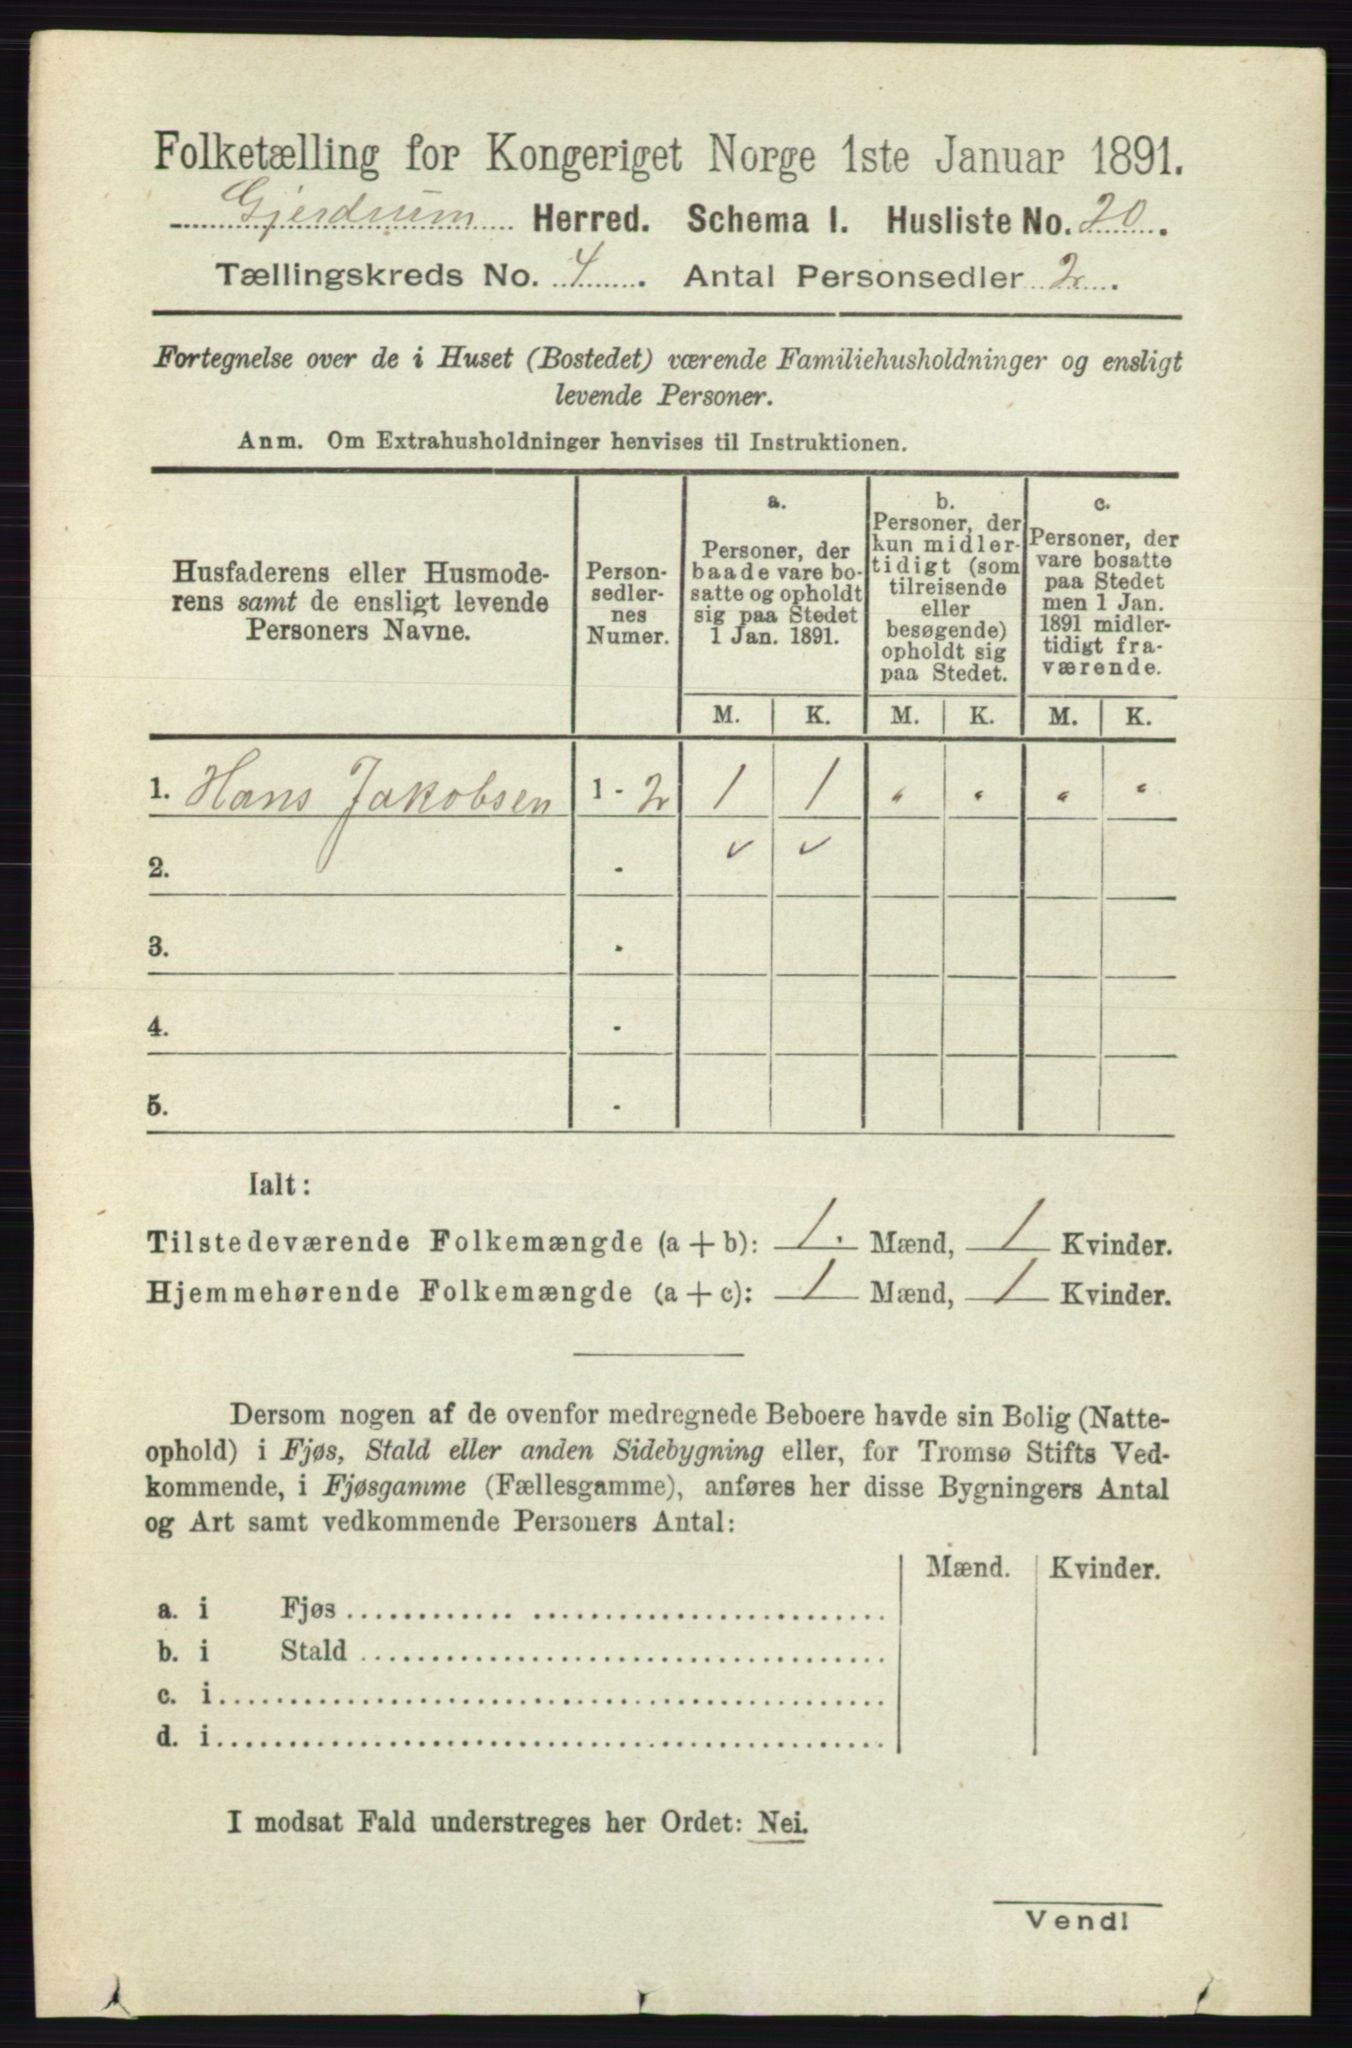 Folketælling for Kongeriget Norge 1ste Januar 1891.
Gjerdrum Herred. Schema I. Husliste No. 20.
Tællingskreds No. 4. Antal Personsedler 2.
Fortegnelse over de i Huset (Bostedet) værende Familiehusholdninger og ensligt
levende Personer.
Anm. Om Extrahusholdninger henvises til Instruktionen.
Husfaderens eller Husmode-
rens samt de ensligt levende
Personers Navne.
Person-
sedler-
nes
Numer.
a.
Personer, der
baade vare bo-
satte og opholdt
sig paa Stedet
1 Jan. 1891.
b.
Personer, der
kun midler-
tidigt (som
tilreisende
eller
besøgende)
opholdt sig
paa Stedet.
c.
Personer, der
vare bosatte
paa Stedet
men 1 Jan.
1891 midler-
tidigt fra-
værende.
M. K. M. K. M. K.
1. Hans Jakobsen 1 - 2 1 1 " " " "
2. - ✓ ✓
3. -
4. -
5. -
Ialt:
Tilstedeværende Folkemængde (a + b): 1. Mænd, 1 Kvinder.
Hjemmehørende Folkemængde (a + c): 1 Mænd, 1 Kvinder.
Dersom nogen af de ovenfor medregnede Beboere havde sin Bolig (Natte-
ophold) i Fjøs, Stald eller anden Sidebygning eller, for Tromsø Stifts Ved-
kommende, i Fjøsgamme (Fællesgamme), anføres her disse Bygningers Antal
og Art samt vedkommende Personers Antal:
Mænd. Kvinder.
a. i Fjøs
b. i Stald
c. i
d. i
I modsat Fald understreges her Ordet: Nei.
Vend!